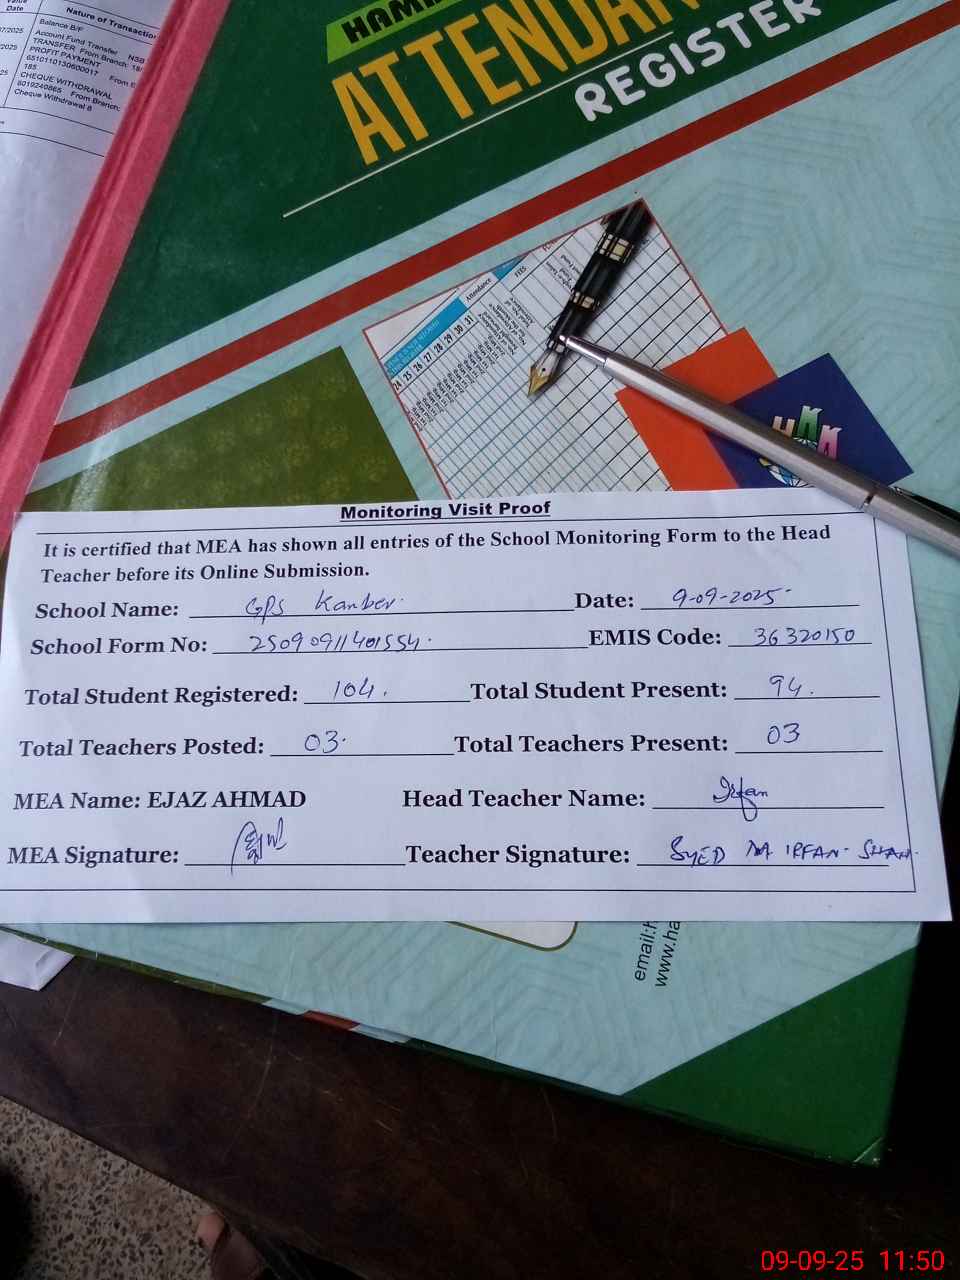 Value
Date
Nature of Transaction
Balance B/F
Account Fund Transfer NSB
TRANSFER From Branch: 18
PROFIT PAYMENT
6510110130600017 From
185
CHEQUE WITHDRAWAL
6019240865 From Branch:
Cheque Withdrawal 8
ATTENDAN
REGISTER
Attendance
FEES
24 25 26 27 28 29 30 31
HKK
Monitoring Visit Proof
It is certified that MEA has shown all entries of the School Monitoring Form to the Head
Teacher before its Online Submission.
School Name: GPS Kanber. Date: 9-09-2025-
School Form No: 25090911401554. EMIS Code: 36320150
Total Student Registered: 104. Total Student Present: 94.
Total Teachers Posted: 03. Total Teachers Present: 03
MEA Name: EJAZ AHMAD Head Teacher Name: Irfan
MEA Signature: Teacher Signature: SYED M IRFAN. SHAH.
email:
www.ha
09-09-25 11:50